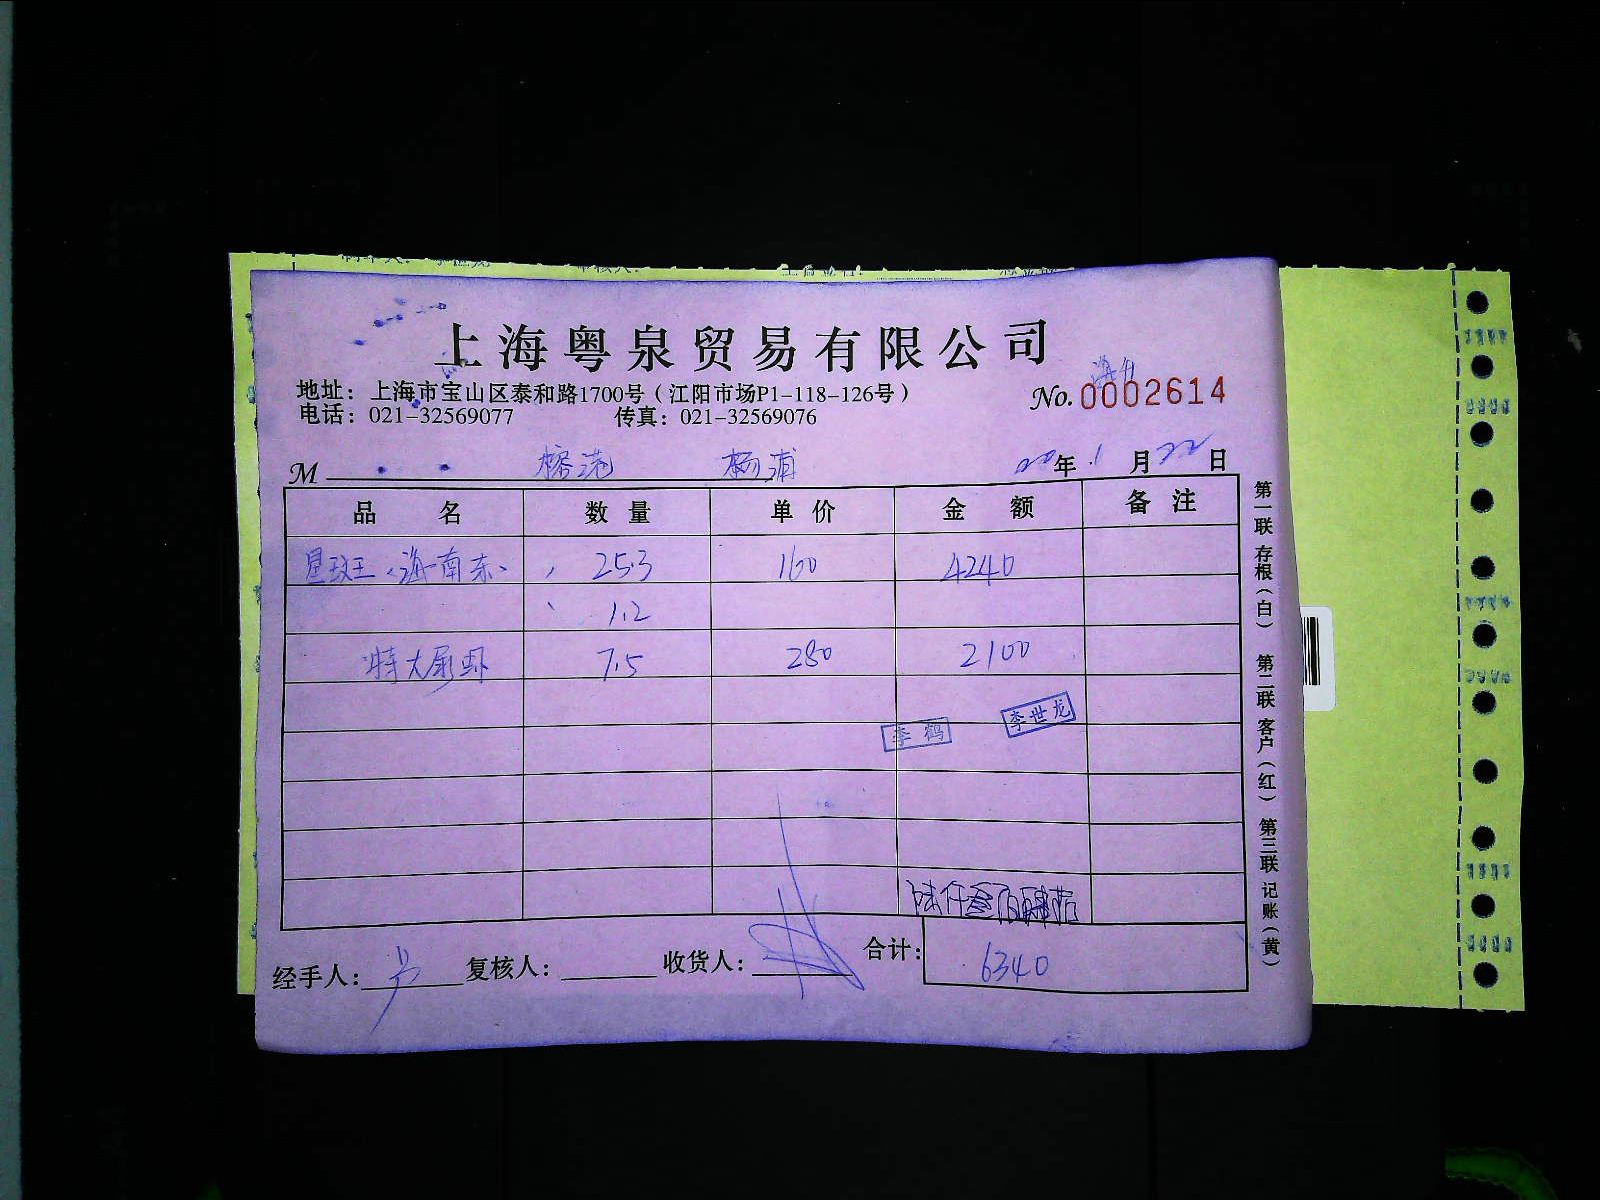 上海粤泉贸易有限公司
地址：上海市宝山区泰和路1700号（江阳市场P1-118-126号）
电话：021-32569077 传真：021-32569076
No. 0002614
M 榕港 杨浦 20年1月22日
品 名 数 量 单 价 金 额 备 注
星斑王（海南东） 25.3 160 4240
1.2
特大尿虾 7.5 280 2100
李鹤 李世龙
陆仟叁佰肆拾
经手人： 复核人： 收货人： 合计： 6340
第一联 存根（白） 第二联 客户（红） 第三联 记账（黄）